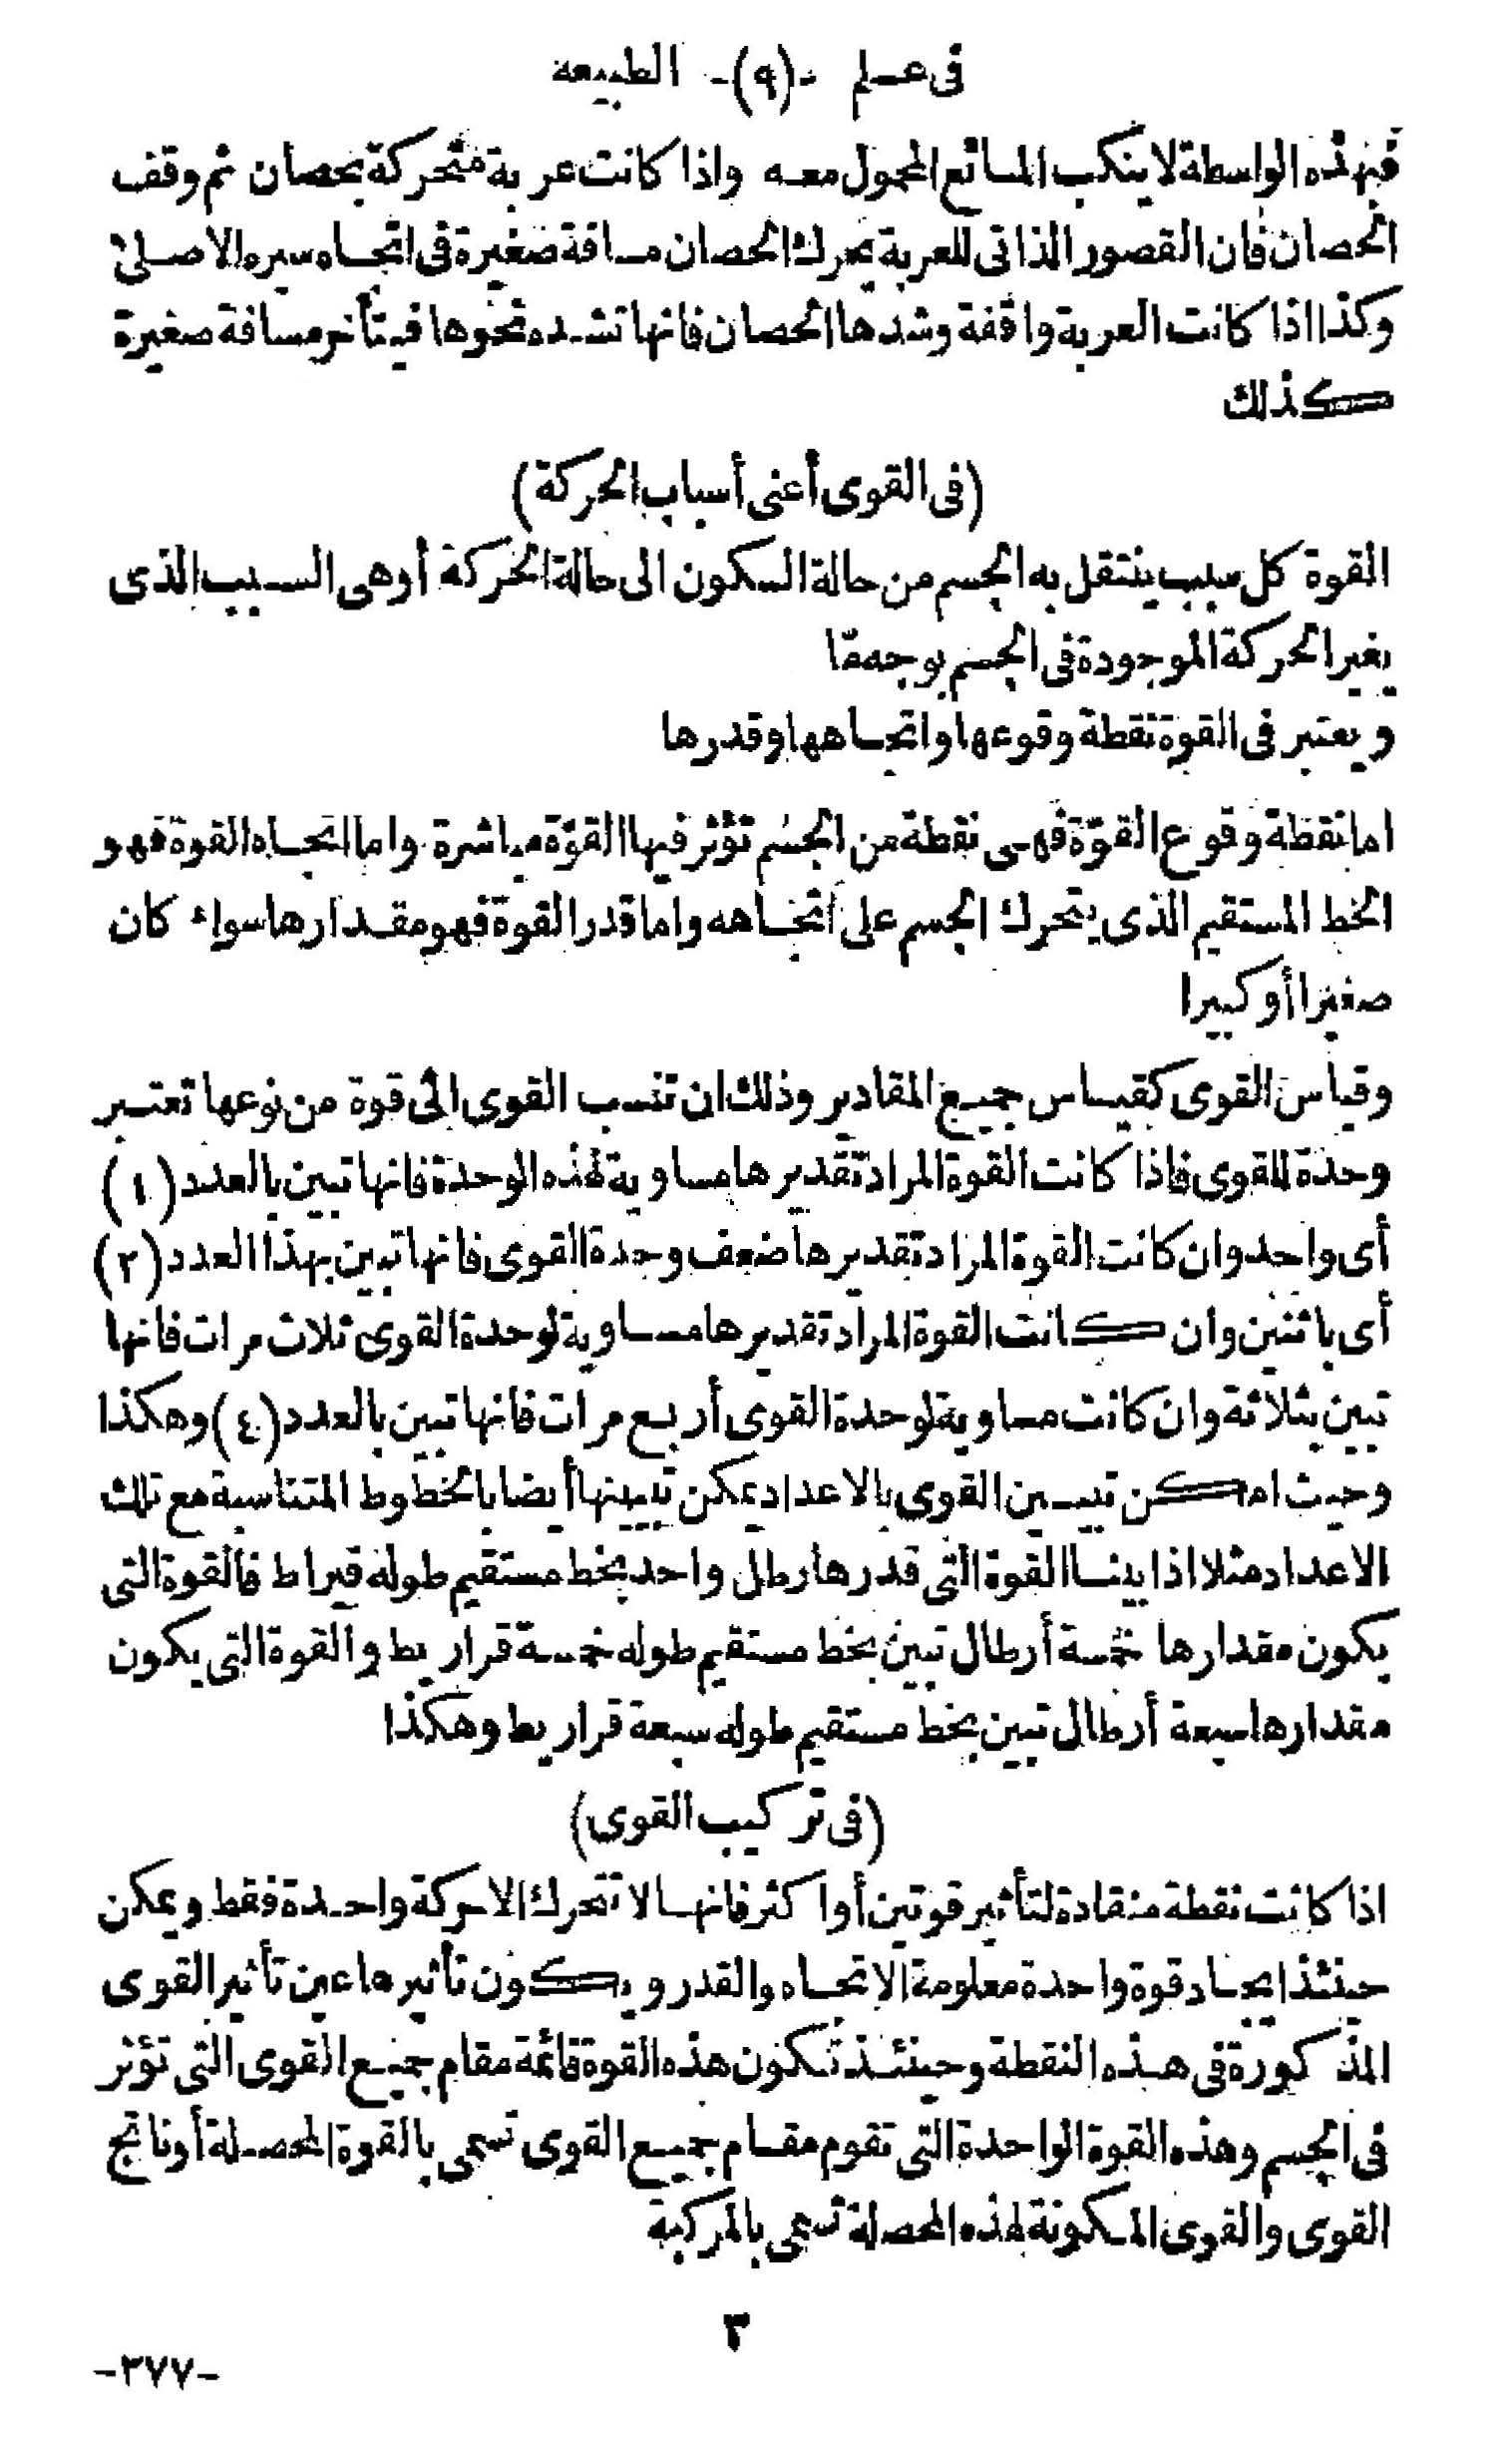 فى علم -(٩)- الطبيعه
فبهذه الواسطة لا ينكب المائع المحمول معه واذا كانت عربة متحركة بحصان ثم وقف
الحصان فان القصور الذاتى للعربة يحرك الحصان مسافة صغيرة فى اتجاه سيره الاصلى
وكذا اذا كانت العربة واقفة وشدها الحصان فانها تشده نحوها فيتأخر مسافة صغيرة
كذلك
(فى القوى أعنى أسباب الحركة)
القوة كل سبب ينتقل به الجسم من حالة السكون الى حالة الحركة أو هى السبب الذى
يغير الحركة الموجودة فى الجسم بوجه مّا
ويعتبر فى القوة نقطة وقوعها واتجاهها وقدرها
اما نقطة وقوع القوّة فهى نقطة من الجسم تؤثر فيها القوّة مباشرة واما اتجاه القوة فهو
الخط المستقيم الذى يتحرك الجسم على اتجاهه واما قدر القوة فهو مقدارها سواء كان
صغيرا أو كبيرا
وقياس القوى كقياس جميع المقادير وذلك ان تنسب القوى الى قوة من نوعها تعتبر
وحدة للقوى فاذا كانت القوة المراد تقديرها مساوية لهذه الوحدة فانها تبين بالعدد (١)
أى واحد وان كانت القوة المراد تقديرها ضعف وحدة القوى فانها تبين بهذا العدد (٢)
أى باثنين وان كانت القوة المراد تقديرها مساوية لوحدة القوى ثلاث مرات فانها
تبين بثلاثة وان كانت مساوية لوحدة القوى أربع مرات فانها تبين بالعدد (٤) وهكذا
وحيث امكن تبيين القوى بالاعداد يمكن تبيينها أيضا بالخطوط المتناسبة مع تلك
الاعداد مثلا اذا بينا القوة التى قدرها رطل واحد بخط مستقيم طوله قيراط فالقوة التى
يكون مقدارها خمسة أرطال تبين بخط مستقيم طوله خمسة قراريط والقوة التى يكون
مقدارها سبعة أرطال تبين بخط مستقيم طوله سبعة قراريط وهكذا
(فى تركيب القوى)
اذا كانت نقطة منقادة لتأثير قوتين أو اكثر فانها لا تتحرك الا حركة واحدة فقط ويمكن
حينئذ ايجاد قوة واحدة معلومة الاتجاه والقدر ويكون تأثيرها عين تأثير القوى
المذكورة فى هذه النقطة وحينئذ تكون هذه القوة قائمة مقام جميع القوى التى تؤثر
فى الجسم وهذه القوة الواحدة التى تقوم مقام جميع القوى تسمى بالقوة المحصلة أو ناتج
القوى والقوى المكونة لهذه المحصلة تسمى بالمركبة
٣
-٣٧٧-